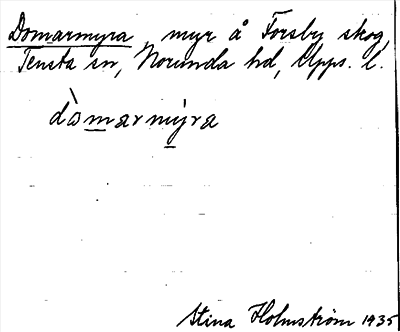 Domarmyra, myr å Forsby skog,
Tensta sn, Norunda hd, Upps. l.
dòmarmýra
Stina Holmström 1935